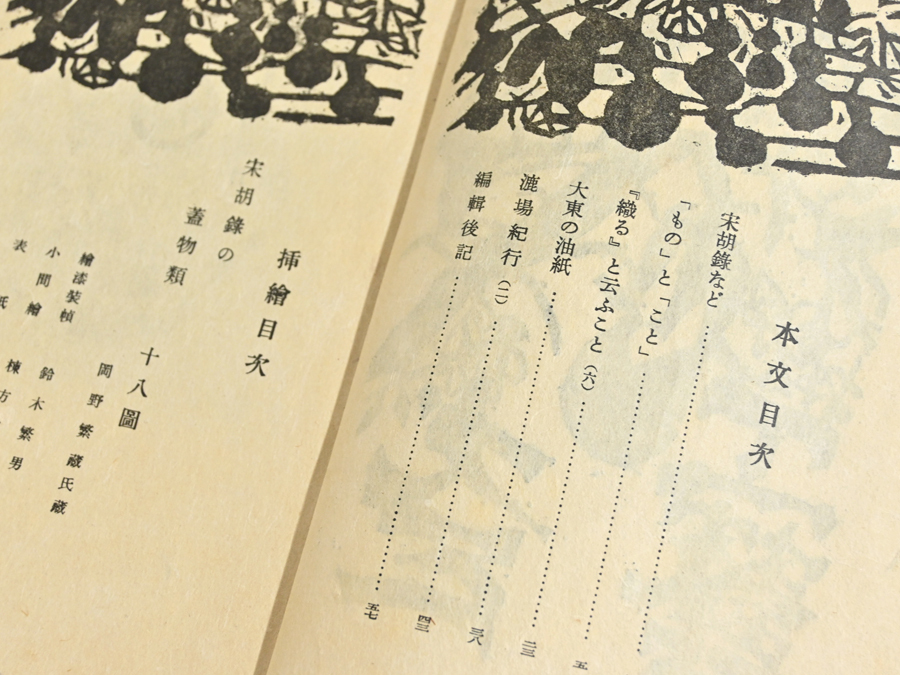 本文目次
宋胡錄など
「もの」と「こと」 五
『織る』と云ふこと(六) 二三
大東の油紙 三八
漉場紀行(二) 四三
編輯後記 五七
挿繪目次
宋胡錄の
蓋物類
十八圖
岡野繁蔵氏蔵
繪漆裝幀 鈴木繁男
小間繪 棟方
表紙